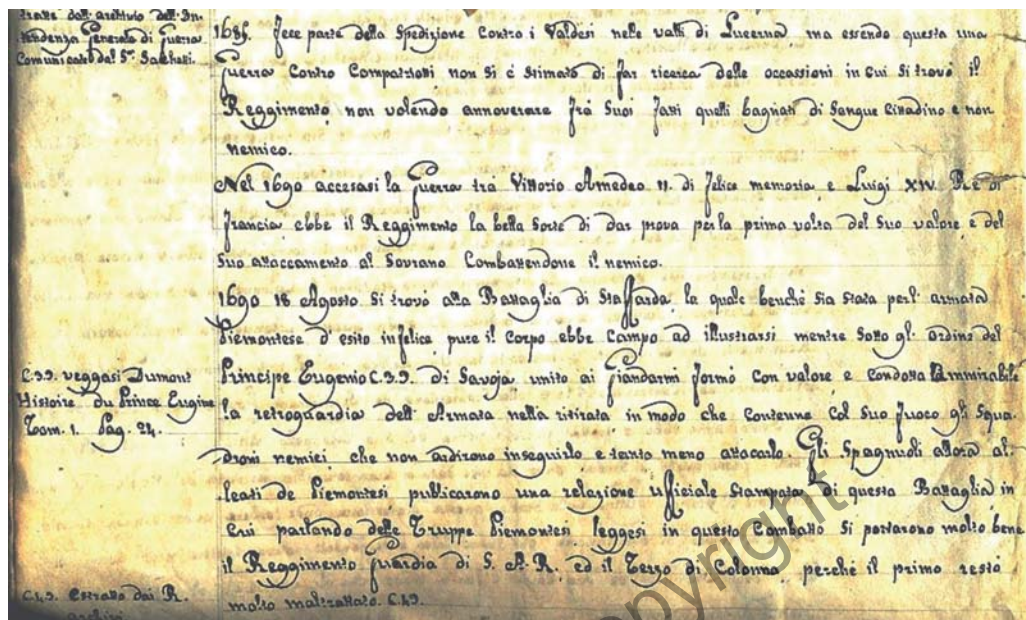 tratte dall'archivio dell'In-
tendenza Generale di Guerra
Comunicate dal Sr.
1685. Fece parte della Spedizione Contro i Valdesi nelle valli di Lucerna, ma essendo questa una
Guerra Contro Compatriotti non Si è Stimato di far ricerca delle occassioni in cui Si trovò il
Reggimento, non volendo annoverare frà Suoi fatti quelli bagnati di Sangue Cittadino e non
nemico.
Nel 1690 accesasi la Guerra tra Vittorio Amedeo II. di felice memoria, e Luigi XIV Rè di
Francia ebbe il Reggimento la bella Sorte di dar prova per la prima volta del Suo valore, e del
Suo attaccamento al Sovrano Combattendone il nemico.
1690 18 Agosto Si trovò alla Battaglia di Staffarda, la quale benchè Sia Stata per l'armata
Piemontese d'esito infelice, pure il Corpo ebbe Campo ad illustrarsi mentre Sotto gl'ordini del
C.3.J. veggasi Dumont
Histoire du Prince Eugine
Tom. 1. Pag. 24.
Principe Eugenio C.3.J. di Savoja, unito ai Giandarmi formò con valore e Condotta Ammirabile
la retroguardia dell'Armata nella ritirata in modo che Contenne Col Suo fuoco gli Squa-
droni nemici, che non ardirono inseguirlo e tanto meno attacarlo. Gli Spagnuoli allora al-
leati de Piemontesi publicarono una relazione ufficiale Stampata, di questa Battaglia in
Cui parlando delle Truppe Piemontesi leggesi in questo Combatto Si portarono molto bene
il Reggimento Guardia di S. A. R. ed il Terzo di Colonna, perchè il primo restò
molto maltrattato. C.4.J.
C.4.J. estratto dai R.
archivi
copyright